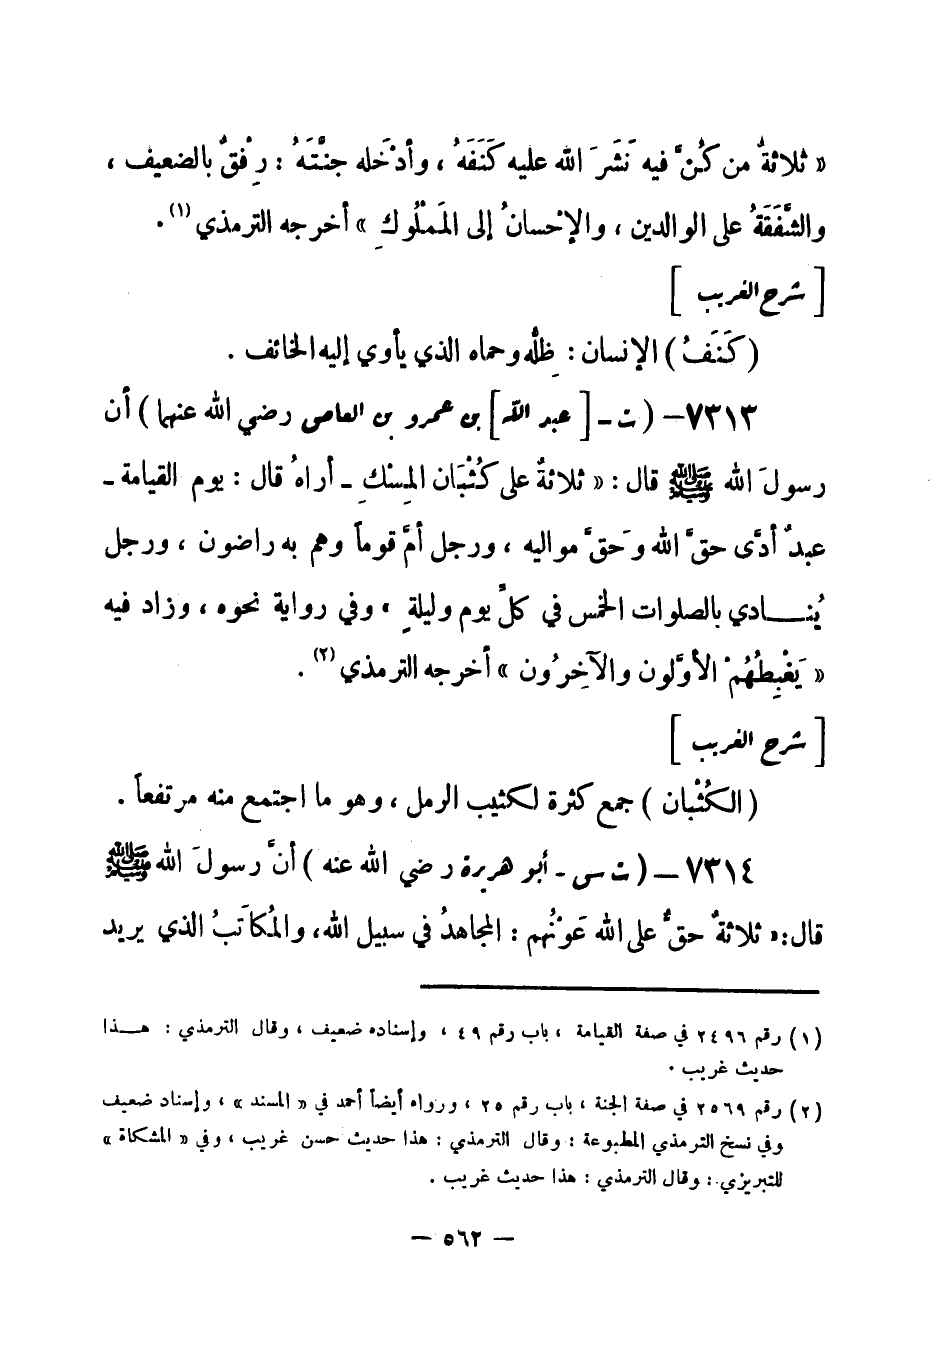 « ثلاثةٌ من كُنَّ فيه نَشَرَ الله عليه كَنَفَهُ ، وأدْخَله جنَّتَهُ : رِفْقٌ بالضعيف ،
والشَّفَقَةُ على الوالدين ، والإحْسانُ إلى المَمْلُوكِ » أخرجه الترمذي (١) .
[ شرح الغريب ]
( كَنَفُ ) الإنسان : ظِلُّه وحماه الذي يأوي إليه الخائف .
٧٣١٣ – ( ت – [ عبد الله ] بن عمرو بن العاص رضي الله عنهما ) أن
رسولَ الله ﷺ قال : « ثلاثةٌ على كُثْبَان المِسْكِ – أراهُ قال : يوم القيامة –
عبدٌ أدَّى حقَّ الله وَحقَّ مواليه ، ورجل أمَّ قوماً وهم به راضون ، ورجل
يُنــادي بالصلوات الخمس في كلِّ يوم وليلةٍ » وفي رواية نحوه ، وزاد فيه
« يَغْبِطُهُمْ الأوَّلون والآخِرُون » أخرجه الترمذي (٢) .
[ شرح الغريب ]
( الكُثْبان ) جمع كثرة لكثيب الرمل ، وهو ما اجتمع منه مرتفعاً .
٧٣١٤ – ( ت س – أبو هريرة رضي الله عنه ) أنَّ رسولَ الله ﷺ
قال : « ثلاثةٌ حقٌّ على الله عَوْنُهم : المجاهدُ في سبيل الله، والمُكاتَبُ الذي يريد
(١) رقم ٢٤٩٦ في صفة القيامة ، باب رقم ٤٩ ، وإسناده ضعيف ، وقال الترمذي : هــذا
حديث غريب .
(٢) رقم ٢٥٦٩ في صفة الجنة ، باب رقم ٢٥ ، ورواه أيضاً أحمد في « المسند » ، وإسناد ضعيف
وفي نسخ الترمذي المطبوعة : وقال الترمذي : هذا حديث حسن غريب ، وفي « المشكاة »
للتبريزي : وقال الترمذي : هذا حديث غريب .
– ٥٦٢ –